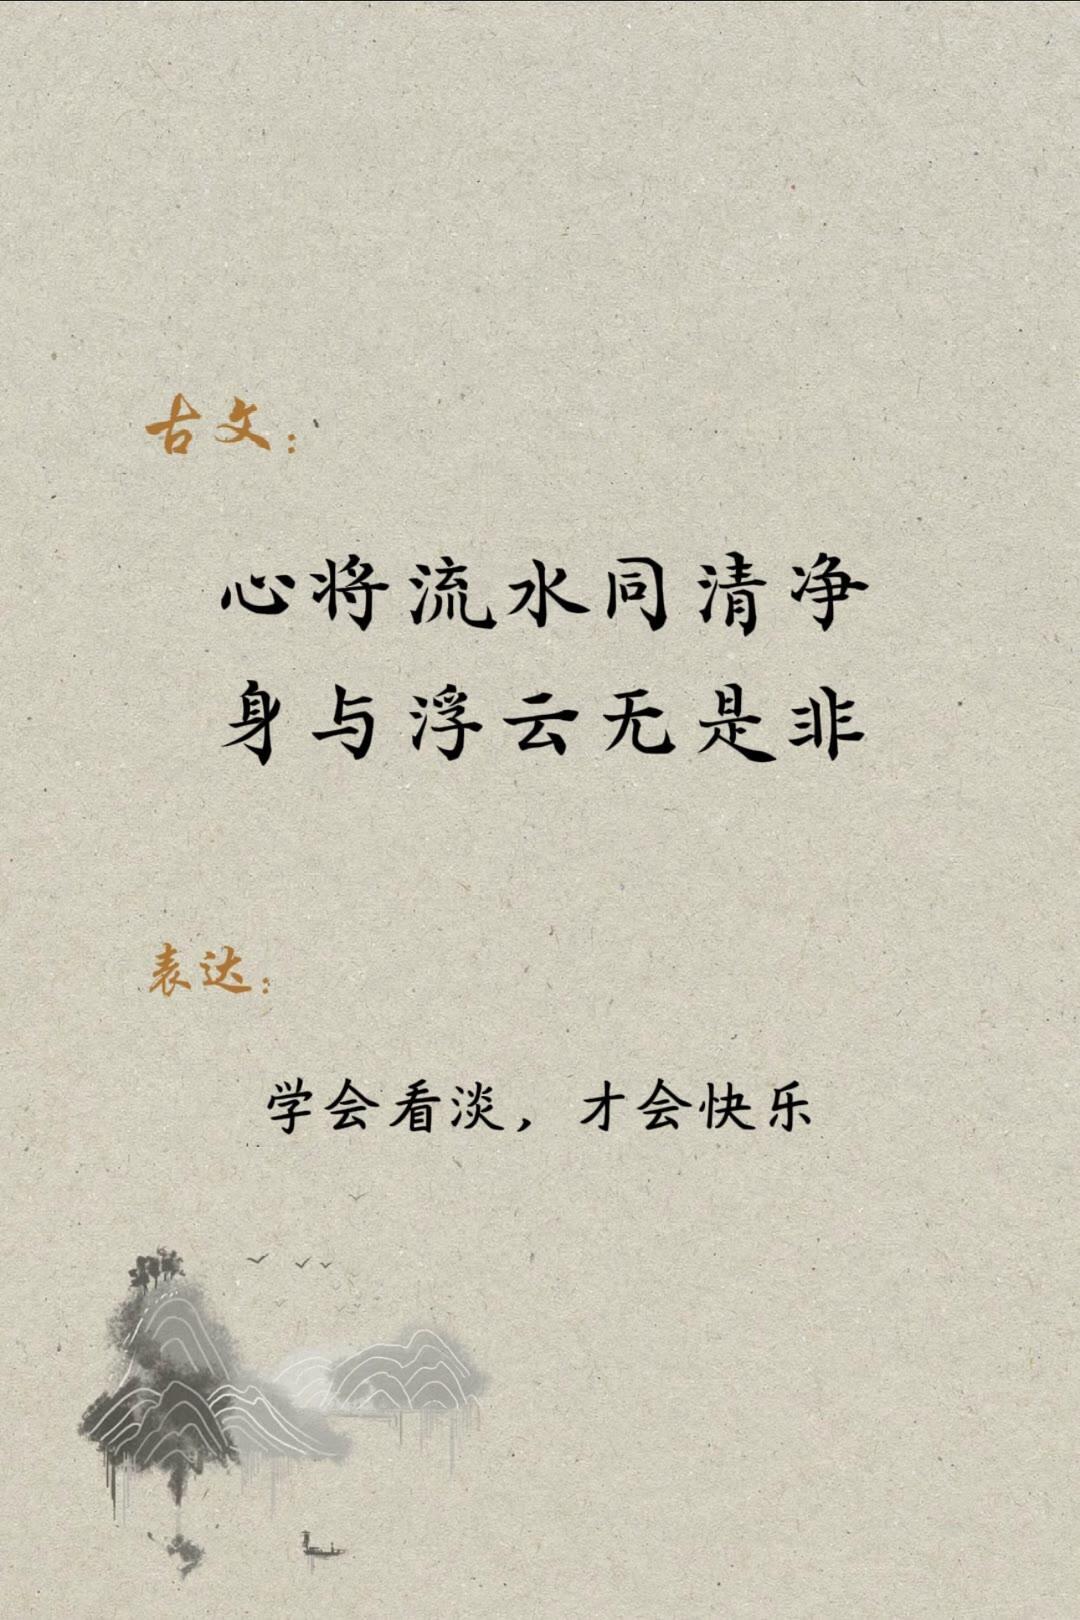 古文：
心将流水同清净
身与浮云无是非
表达：
学会看淡，才会快乐